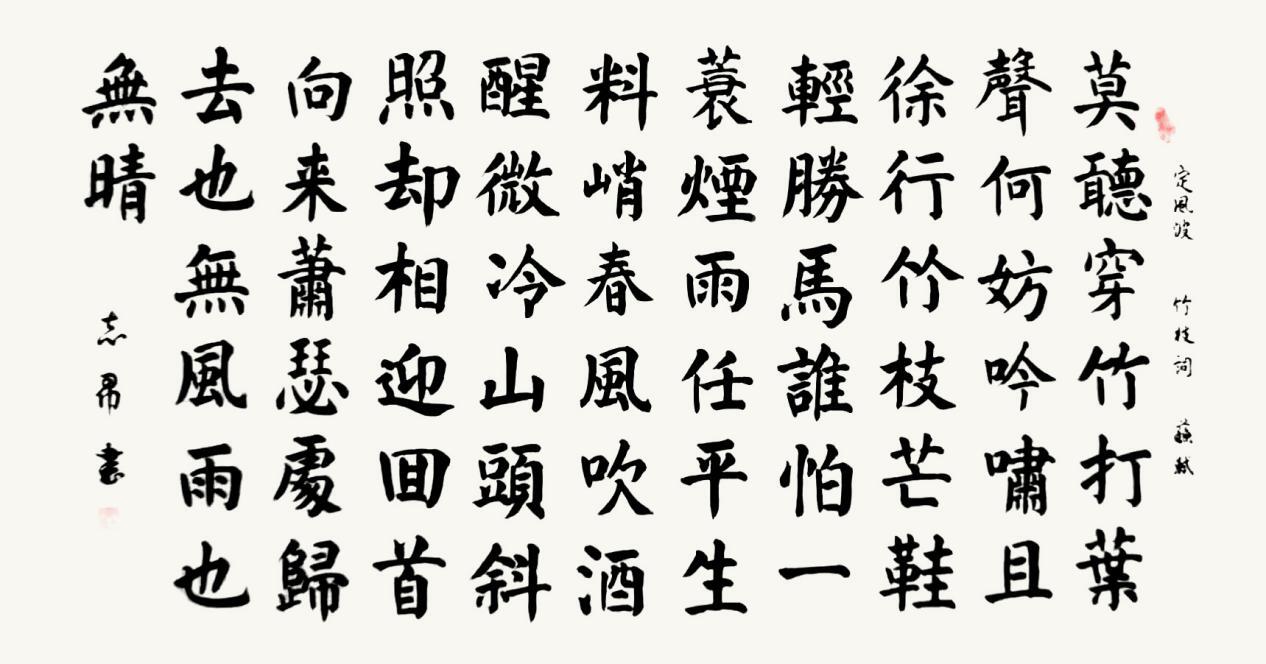 定風波 竹枝詞 蘇軾
莫聽穿竹打葉
聲何妨吟嘯且
徐行竹枝芒鞋
輕勝馬誰怕一
蓑煙雨任平生
料峭春風吹酒
醒微冷山頭斜
照却相迎囬首
向来蕭瑟處歸
去也無風雨也
無晴
志 書